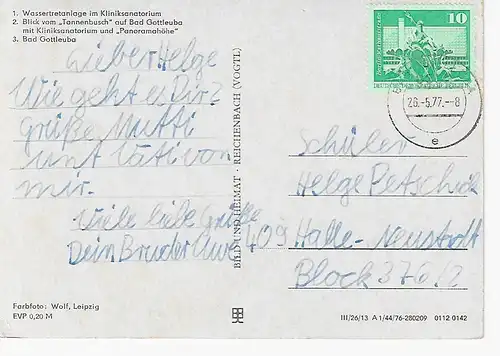 1. Wassertretanlage im Kliniksanatorium
2. Blick vom „Tannenbusch" auf Bad Gottleuba
mit Kliniksanatorium und „Panoramahöhe"
3. Bad Gottleuba
Lieber Helge
Wie geht es Dir?
grüße Mutti
unt Vati von
mir.
Viele liebe Grüße
Dein Bruder Uwe
BILD UND HEIMAT · REICHENBACH (VOGTL)
10
26.-5.77.-8
e
Schüler
Helge Petschick
409 Halle-Neustadt
Block 376/2
Farbfoto: Wolf, Leipzig
EVP 0,20 M
III/26/13 A 1/44/76-280209 0112 0142